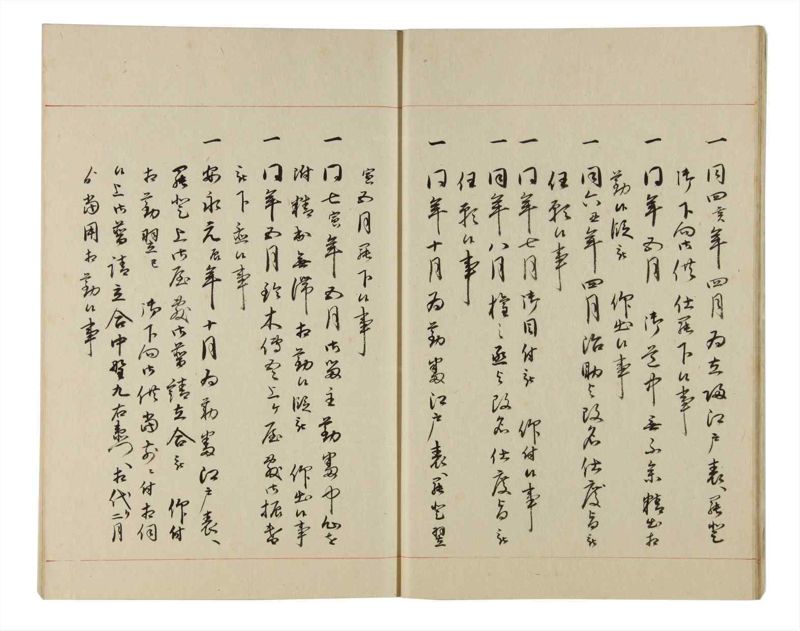 一 同四亥年四月為立帰江戸表へ罷登
御下向御供仕罷下候事
一 同年五月 御道中無不案精出相
勤候段被 仰出候事
一 同六丑年四月治助与改名仕度旨被
任願候事
一 同年七月御目付被 仰付候事
一 同年八月 之丞与改名仕度旨被
任願候事
一 同年十月為勤番江戸表へ罷登翌
寅五月罷下候事
一 同七寅年五月御留主勤番中
精出無滞相勤候段被 仰出候事
一 同年五月鈴木傳 上ケ屋敷御振替
被下置候事
一 安永元辰年十月為勤番江戸表へ
罷登上御屋敷御普請立合被 仰付
相勤翌巳 御下向御供 付相伺
候上御普請立合中野九右衛門へ相代二月
ゟ当用相勤候事